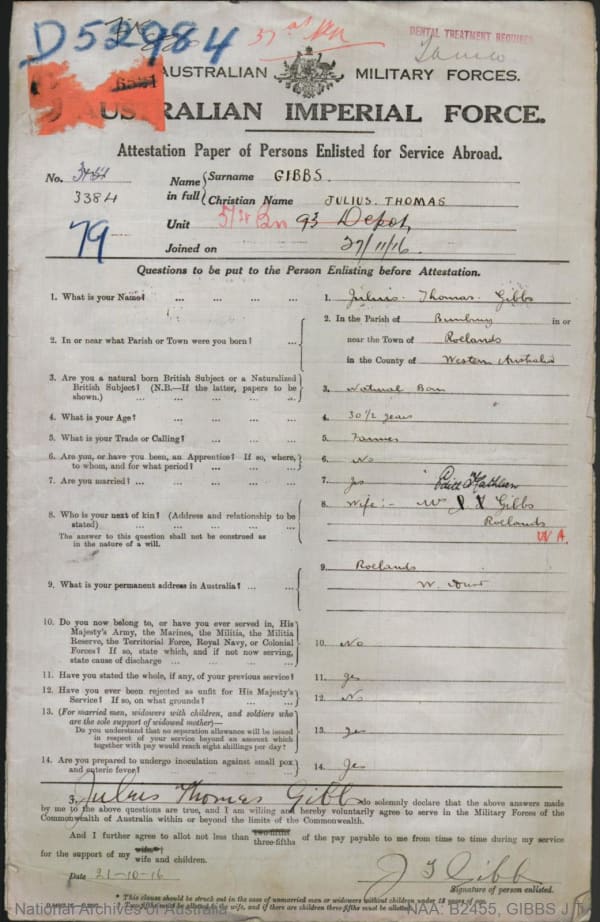 D52984
37
DENTAL TREATMENT REQUIRED
AUSTRALIAN MILITARY FORCES.
AUSTRALIAN IMPERIAL FORCE.
Attestation Paper of Persons Enlisted for Service Abroad.
No. 3384
Name in full Surname GIBBS.
Christian Name JULIUS. THOMAS
79
Unit 51st Bn 93 Depot,
Joined on 27/11/16.
Questions to be put to the Person Enlisting before Attestation.
1. What is your Name? ... ... ... ... 1. Julius. Thomas. Gibbs
2. In or near what Parish or Town were you born? ... 2. In the Parish of Bunbury in or
near the Town of Roelands
in the County of Western Australia
3. Are you a natural born British Subject or a Naturalized
British Subject? (N.B.—If the latter, papers to be
shown.) ... ... ... ... ... 3. Natural Born
4. What is your Age? ... ... ... ... 4. 30 1/2 years
5. What is your Trade or Calling? ... ... ... 5. Farmer
6. Are you, or have you been, an Apprentice? If so, where,
to whom, and for what period? ... ... ... 6. No
7. Are you married? ... ... ... ... ... 7. Yes
Edith Kathleen
8. Who is your next of kin? (Address and relationship to be
stated) ... ... ... ... ... 8. Wife :- Mrs J T Gibbs
Roelands
W.A.
The answer to this question shall not be construed as
in the nature of a will.
9. What is your permanent address in Australia? ... ... 9. Roelands
W. Aust
10. Do you now belong to, or have you ever served in, His
Majesty's Army, the Marines, the Militia, the Militia
Reserve, the Territorial Force, Royal Navy, or Colonial
Forces? If so, state which, and if not now serving,
state cause of discharge ... ... ... ... 10. No
11. Have you stated the whole, if any, of your previous service? 11. Yes
12. Have you ever been rejected as unfit for His Majesty's
Service? If so, on what grounds? ... ... ... 12. No
13. (For married men, widowers with children, and soldiers who
are the sole support of widowed mother)—
Do you understand that no separation allowance will be issued
in respect of your service beyond an amount which
together with pay would reach eight shillings per day? 13. Yes
14. Are you prepared to undergo inoculation against small pox
and enteric fever? ... ... ... ... 14. Yes
I, Julius Thomas Gibbs do solemnly declare that the above answers made
by me to the above questions are true, and I am willing and hereby voluntarily agree to serve in the Military Forces of the
Commonwealth of Australia within or beyond the limits of the Commonwealth.
And I further agree to allot not less than two-fifths three-fifths of the pay payable to me from time to time during my service
for the support of my wife* wife and children.
Date 21-10-16
J T Gibbs
Signature of person enlisted.
* This clause should be struck out in the case of unmarried men or widowers without children under 18 years of age.
Two-fifths must be allotted to the wife, and if there are children three-fifths must be allotted.
National Archives of Australia
NAA: B2455, GIBBS J T